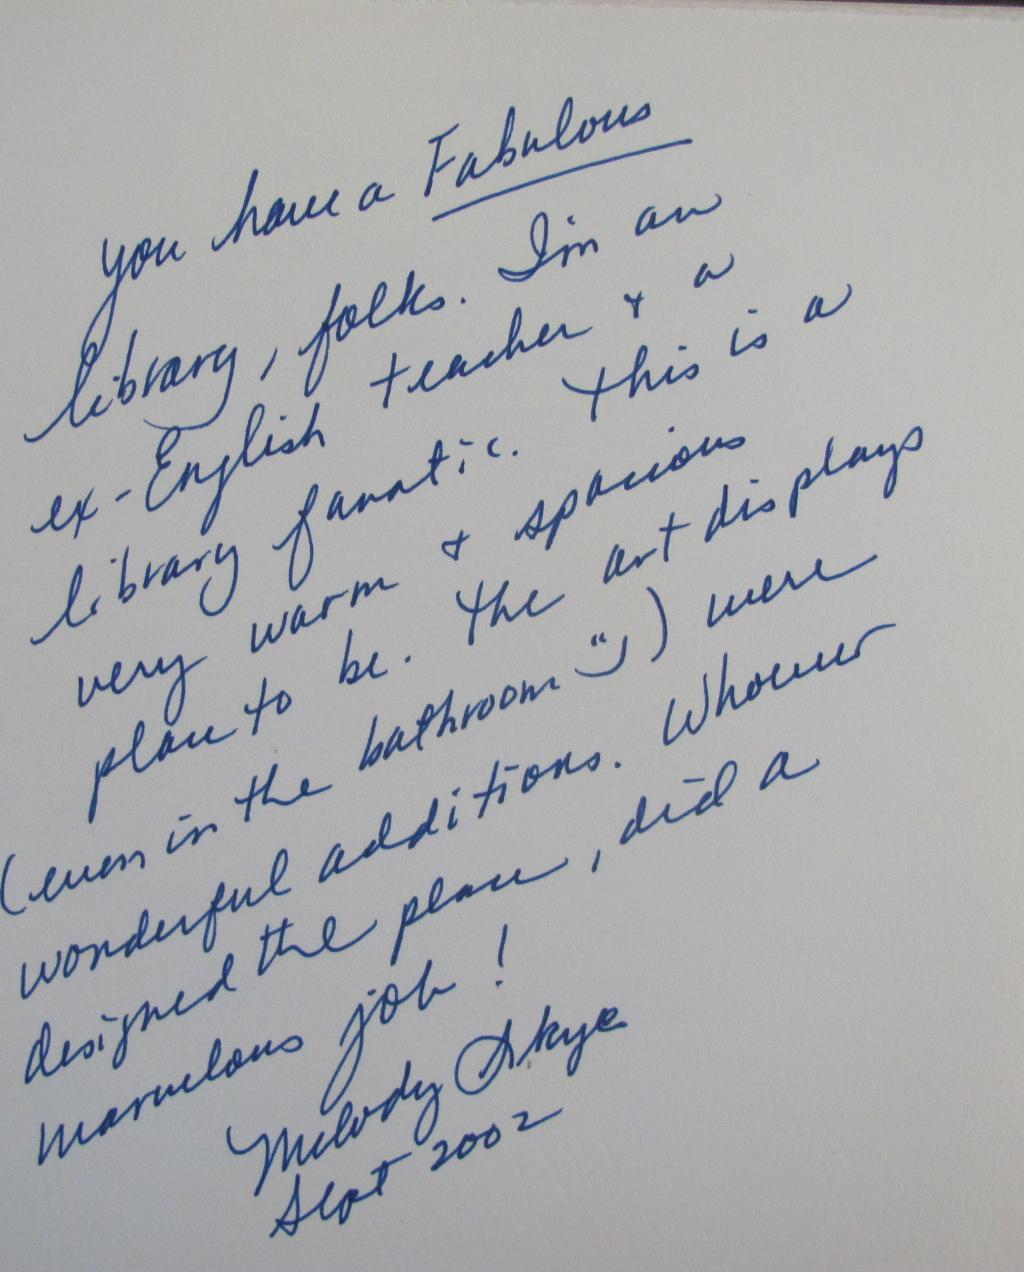 you have a Fabulous
library, folks. I'm an
ex-English teacher & a
library fanatic. This is a
very warm & spacious
place to be. The art displays
(even in the bathroom ☺) were
wonderful additions. Whoever
designed the place, did a
marvelous job!
Melody Skye
Sept 2002